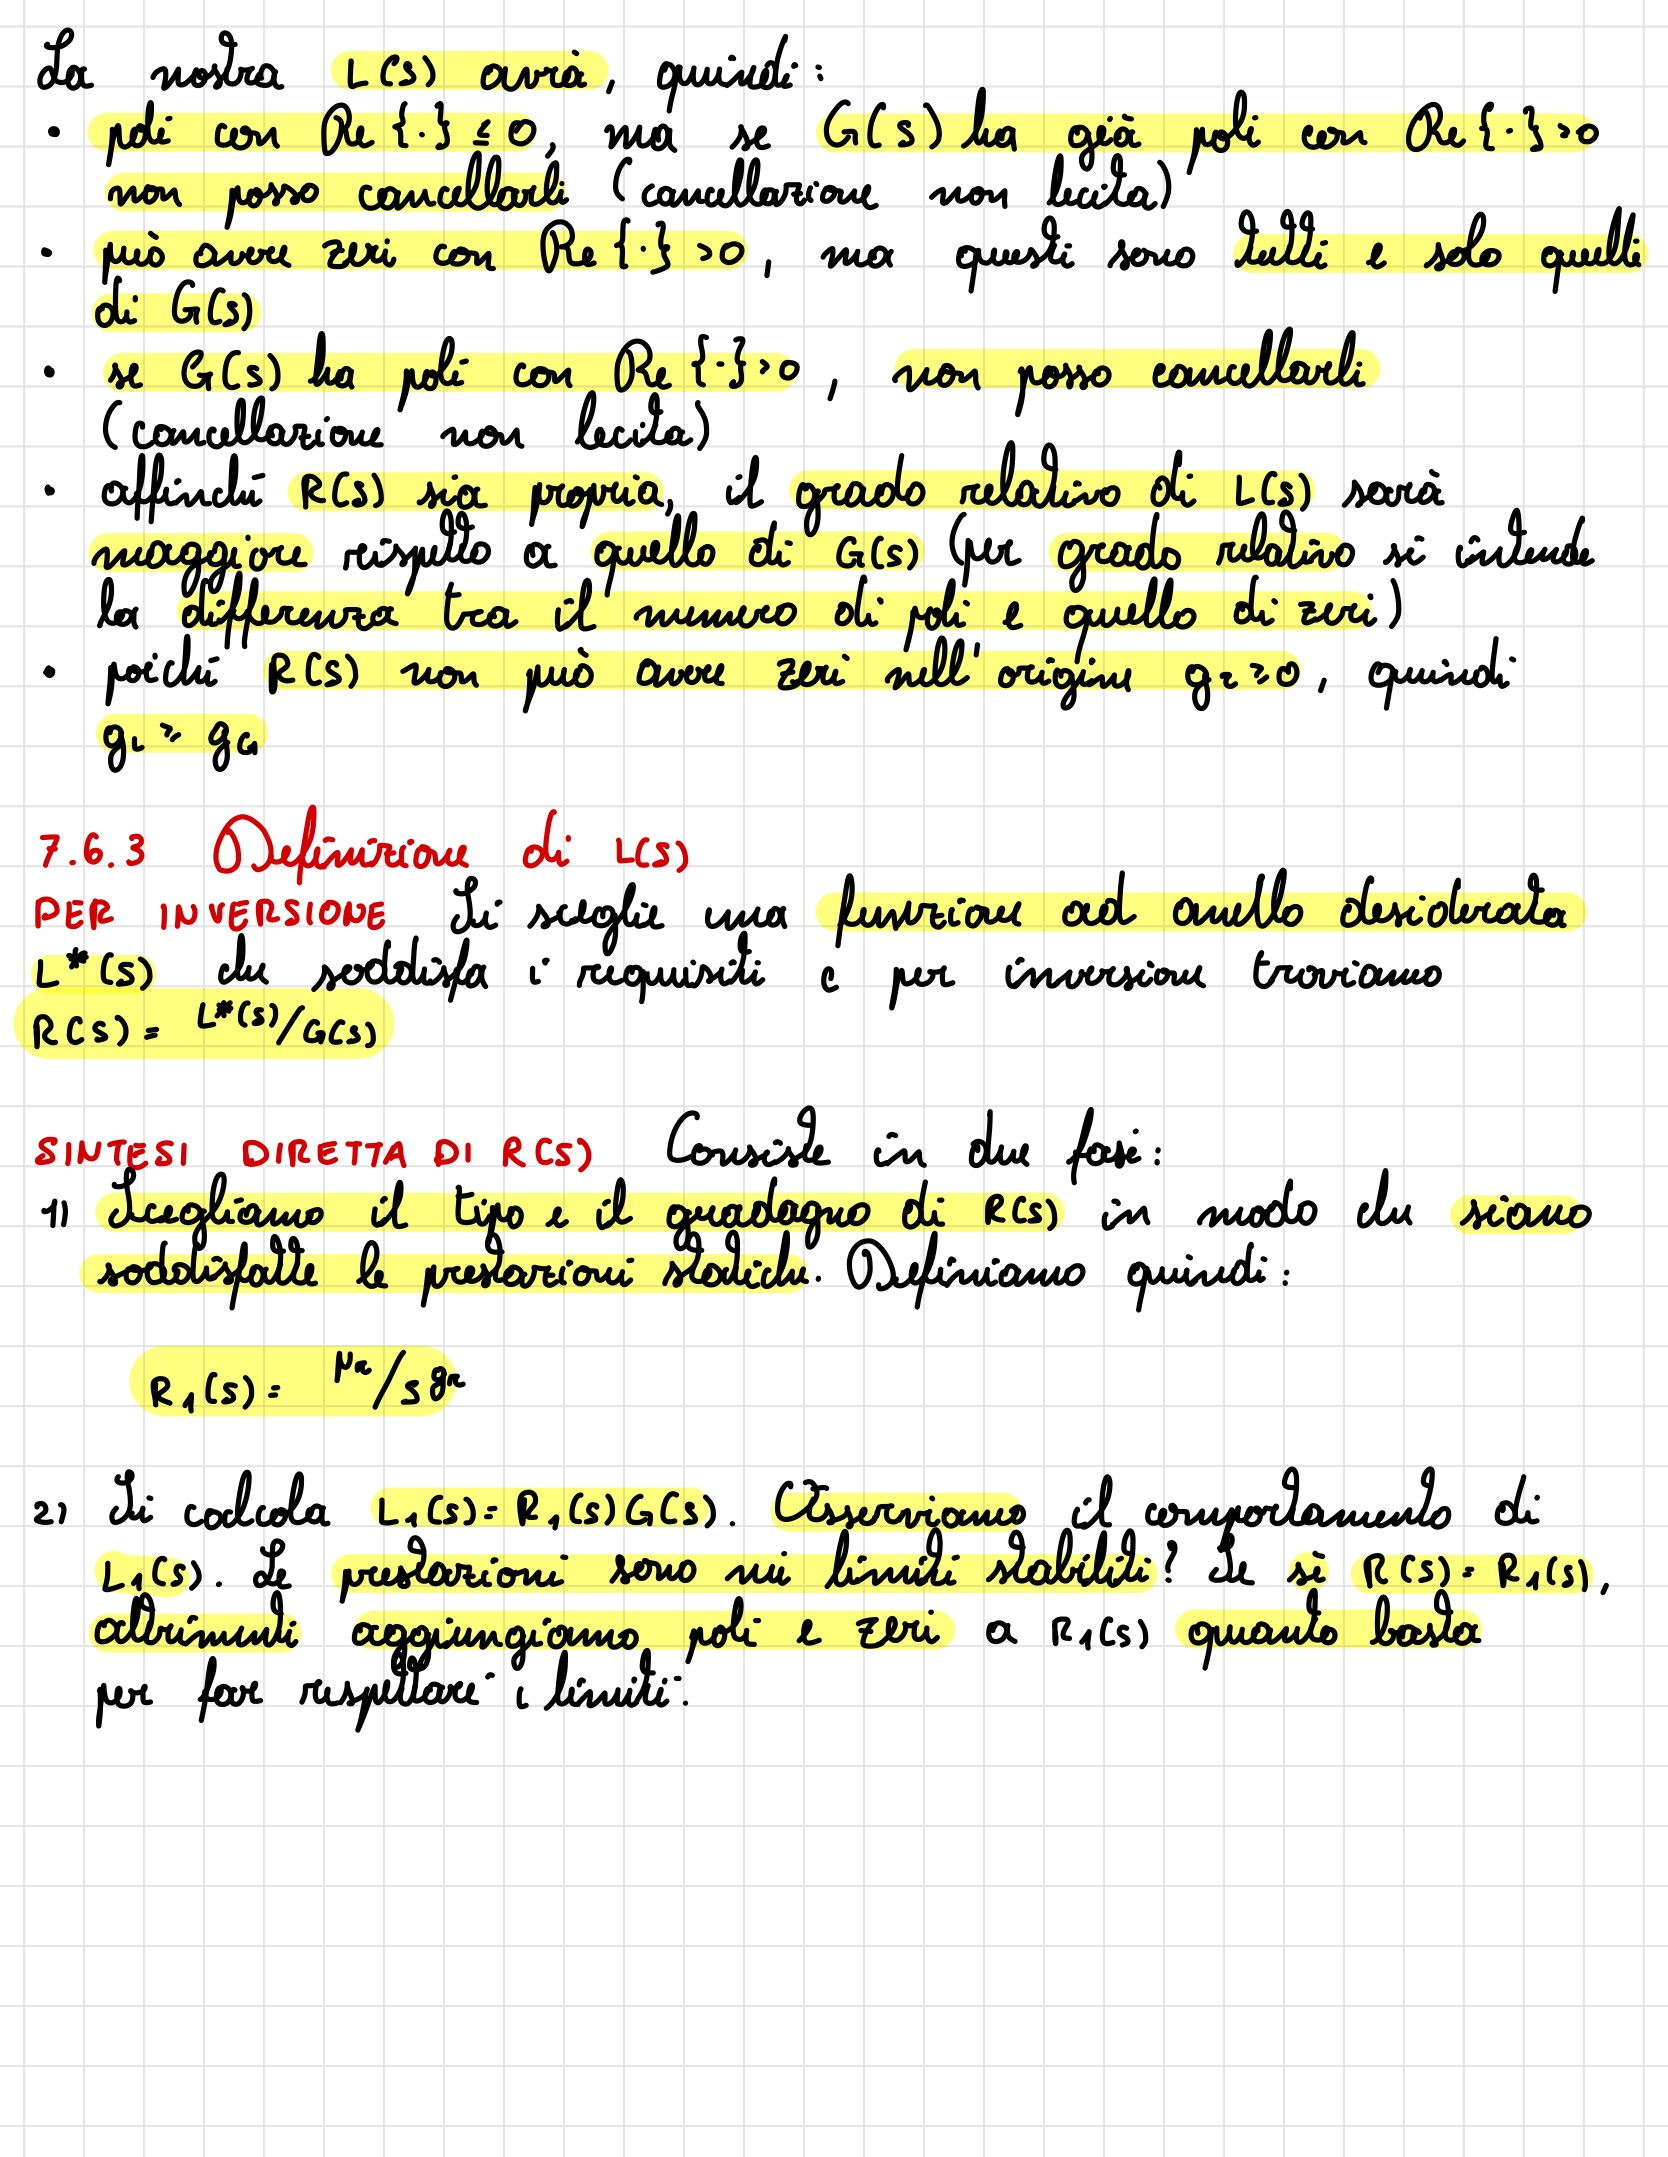 La nostra L(s) avrà, quindi:
• poli con Re{·} ≤ 0, ma se G(s) ha già poli con Re{·}>0
non posso cancellarli (cancellazione non lecita)
• può avere zeri con Re{·}>0, ma questi sono tutti e solo quelli
di G(s)
• se G(s) ha poli con Re{·}>0, non posso cancellarli
(cancellazione non lecita)
• affinché R(s) sia propria, il grado relativo di L(s) sarà
maggiore rispetto a quello di G(s) (per grado relativo si intende
la differenza tra il numero di poli e quello di zeri)
• poiché R(s) non può avere zeri nell'origine g_r ≥ 0, quindi
g_L ≥ g_G
7.6.3 Definizione di L(s)
PER INVERSIONE Si sceglie una funzione ad anello desiderata
L*(s) che soddisfa i requisiti e per inversione troviamo
R(s) = L*(s)/G(s)
SINTESI DIRETTA DI R(s) Consiste in due fasi:
1) Scegliamo il tipo e il guadagno di R(s) in modo che siano
soddisfatte le prestazioni statiche. Definiamo quindi:
R₁(s) = μ_r/s^g_r
2) Si calcola L₁(s) = R₁(s)G(s). Osserviamo il comportamento di
L₁(s). Le prestazioni sono nei limiti stabiliti? Se sì R(s) = R₁(s),
altrimenti aggiungiamo poli e zeri a R₁(s) quanto basta
per far rispettare i limiti.